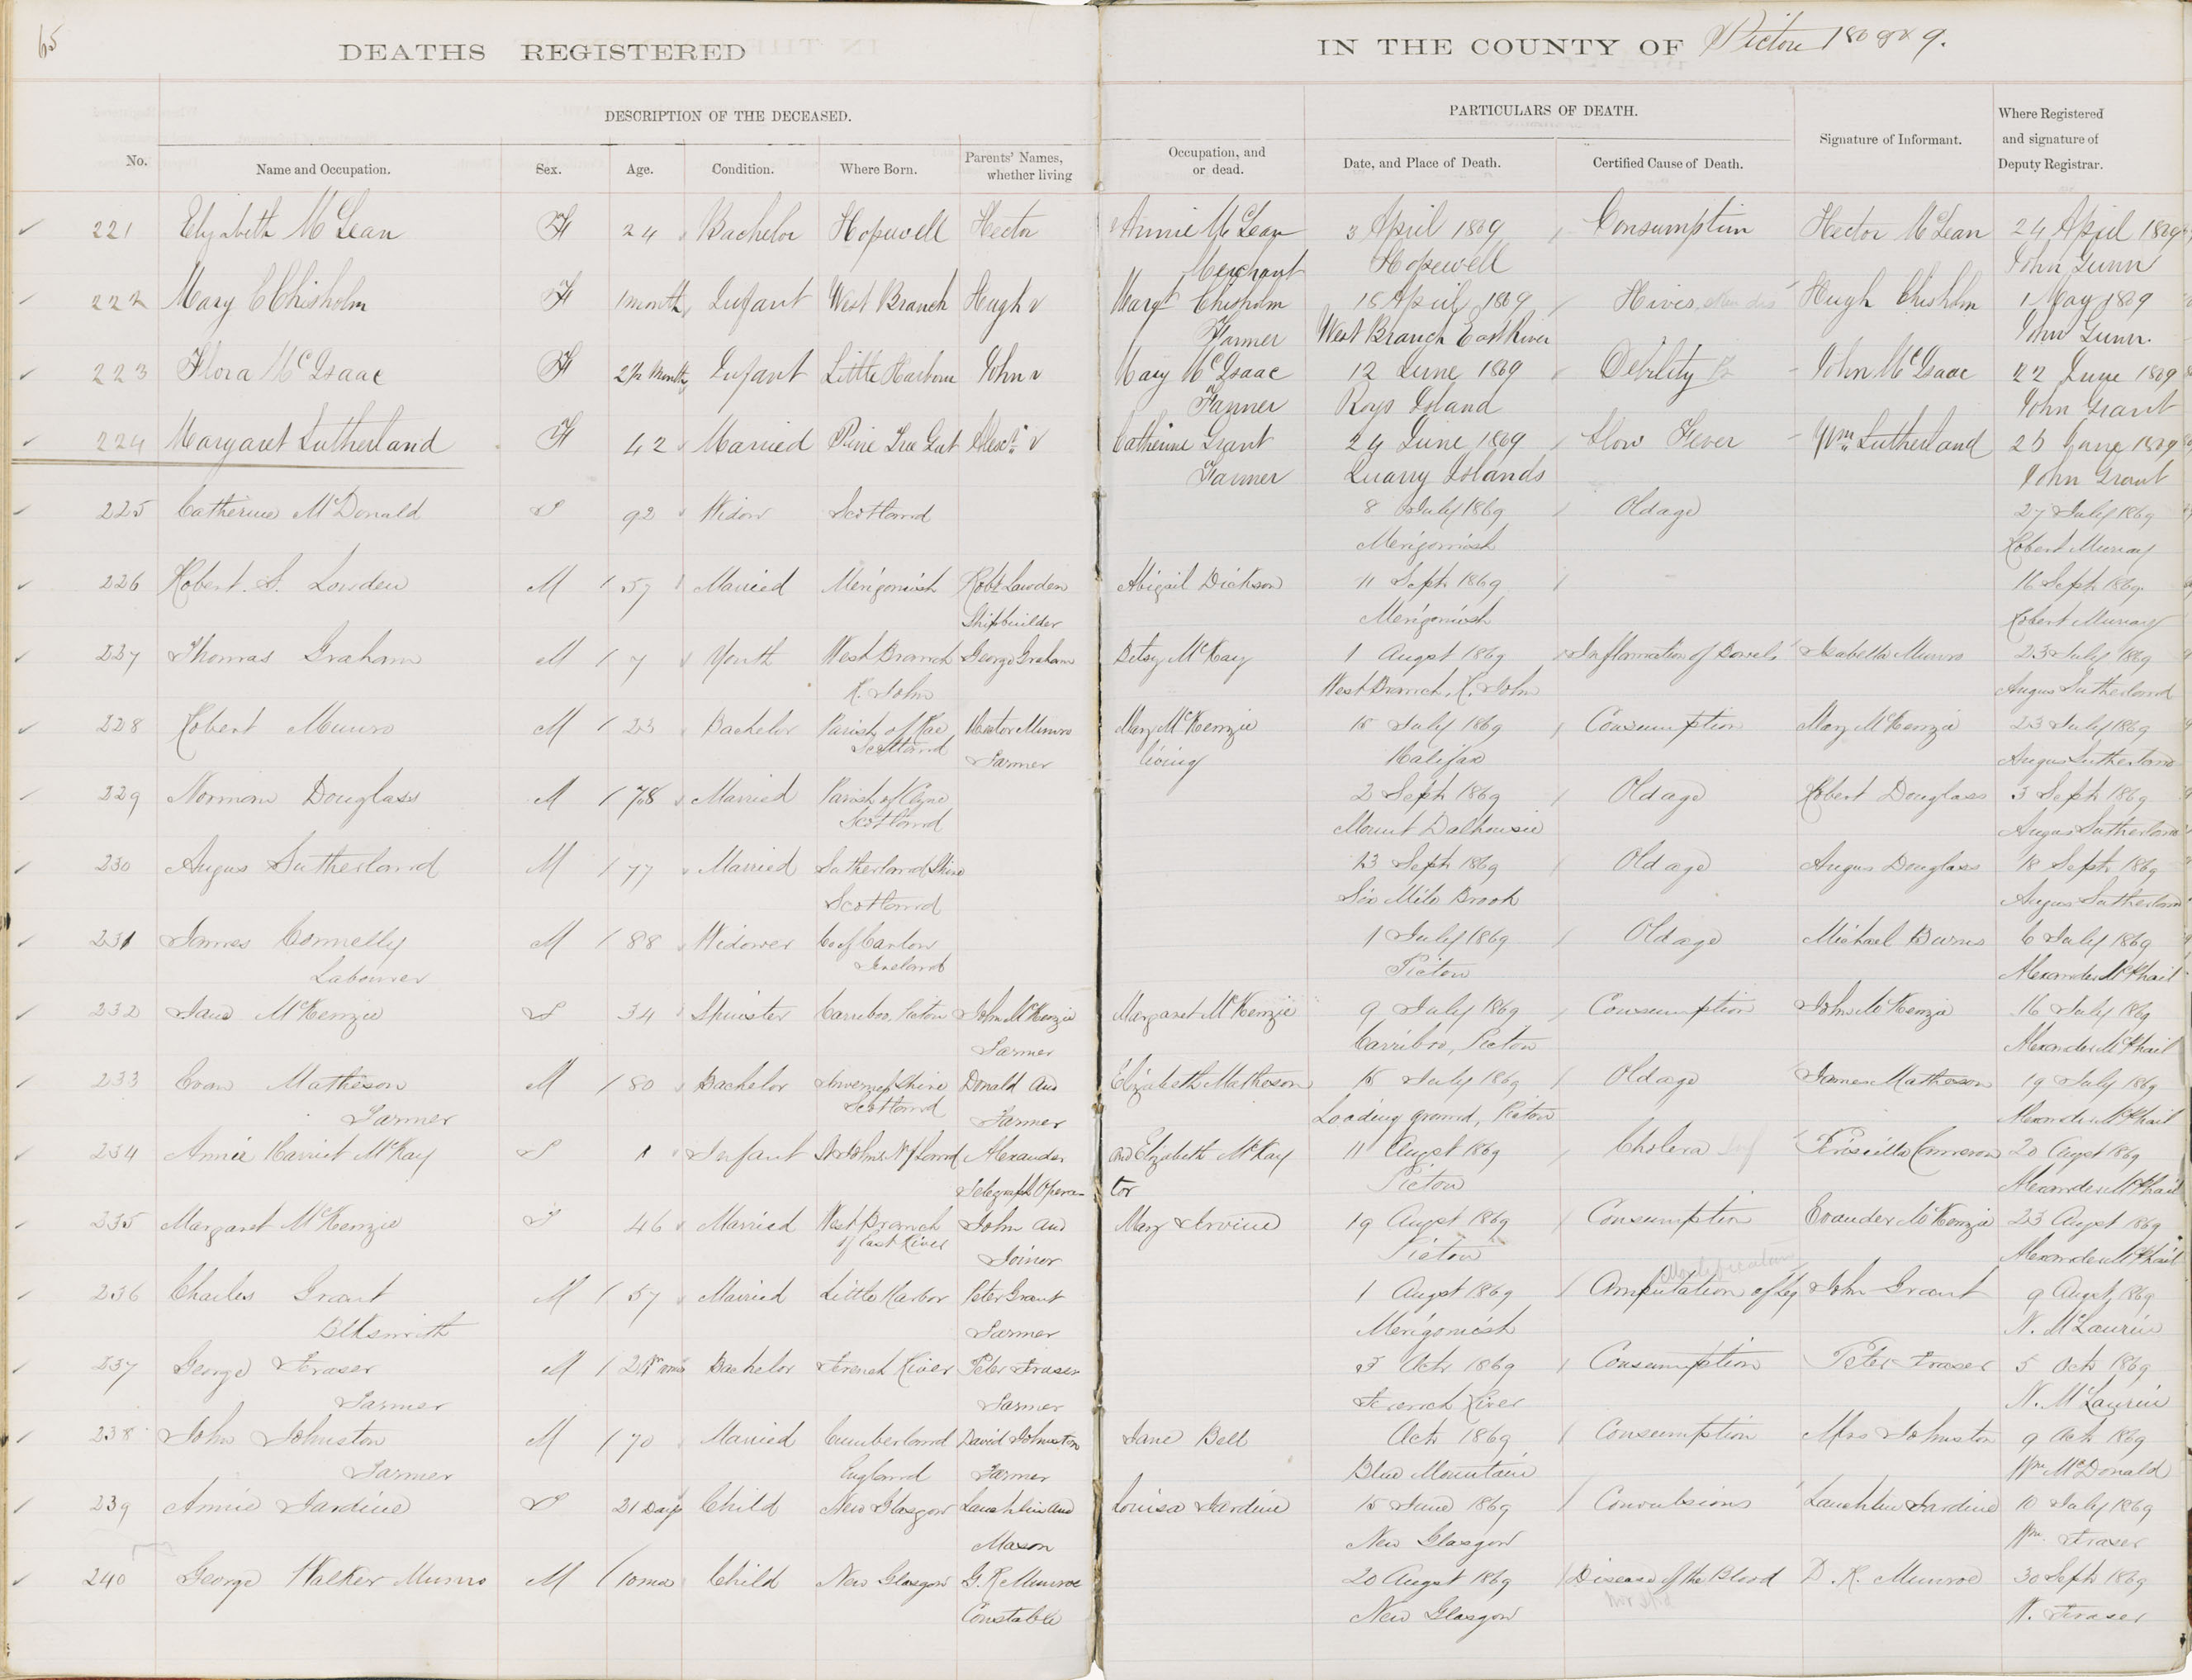 65
DEATHS REGISTERED IN THE COUNTY OF Pictou
DESCRIPTION OF THE DECEASED. PARTICULARS OF DEATH.
No. Name and Occupation. Sex. Age. Condition. Where Born. Parents' Names, whether living Occupation, and or dead. Date, and Place of Death. Certified Cause of Death. Signature of Informant. Where Registered and signature of Deputy Registrar.
221 Elizabeth McLean F 24 Bachelor Hopewell Hector Annie McLean 3 April 1869 Consumption Hector McLean 24 April 1869
Merchant Hopewell John Gunn
222 Mary C Chisholm F 1 month Infant West Branch Hugh & Margt Chisholm 15 April 1869 Hives Hugh Chisholm 1 May 1869
Farmer West Branch East River John Gunn.
223 Flora McIsaac F 2½ Months Infant Little Harbour John & Mary McIsaac 12 June 1869 Debility John McIsaac 22 June 1869
Farmer Roys Island John Grant
224 Margaret Sutherland F 42 Married Pine Tree Gut Alexr & Catherine Grant 24 June 1869 Slow Fever Wm Sutherland 25 June 1869
Farmer Quarry Islands John Grant
225 Catherine McDonald F 92 Widow Scotland 8 July 1869 Old age 27 July 1869
Merigomish Robert Murray
226 Robert S. Lowden M 57 Married Merigomish Robt Lowden Abigail Dickson 11 Septr 1869 16 Septr 1869
Shipbuilder Merigomish Robert Murray
227 Thomas Graham M 7 Youth West Branch George Graham Betsy McKay 1 Augst 1869 Inflamation of Bowels Isabella Munro 23 July 1869
R. John West Branch, R. John Angus Sutherland
228 Robert Munro M 23 Bachelor Parish of Rae Hector Munro Mary McKenzie 15 July 1869 Consumption Mary McKenzie 23 July 1869
Scotland Farmer living Halifax Angus Sutherland
229 Norman Douglass M 78 Married Parish of Clyne 2 Septr 1869 Old age Robert Douglass 3 Septr 1869
Scotland Mount Dalhousie Angus Sutherland
230 Angus Sutherland M 77 Married Sutherland Shire 13 Septr 1869 Old age Angus Douglass 18 Septr 1869
Scotland Six Mile Brook Angus Sutherland
231 James Connelly M 88 Widower Co of Carlow 1 July 1869 Old age Michael Burns 6 July 1869
Labourer Ireland Pictou Alexander McPhail
232 Jane McKenzie F 34 Spinster Carriboo, Pictou John McKenzie Margaret McKenzie 9 July 1869 Consumption John McKenzie 16 July 1869
Farmer Carriboo, Pictou Alexander McPhail
233 Evan Matheson M 80 Bachelor Inverness Shire Donald and Elizabeth Matheson 15 July 1869 Old age James Matheson 19 July 1869
Farmer Scotland Farmer Loading ground, Pictou Alexander McPhail
234 Annie Harriet McKay F 1 Infant St Johns Nfland Alexander and Elizabeth McKay 11 Augst 1869 Cholera Inf Priscilla Cameron 20 Augst 1869
Telegraph Opera- tor Pictou Alexander McPhail
235 Margaret McKenzie F 46 Married West Branch John and Mary Irvine 19 Augst 1869 Consumption Evander McKenzie 23 Augst 1869
of East River Joinor Pictou Alexander McPhail
236 Charles Grant M 57 Married Little Harbor Peter Grant 1 Augst 1869 Amputation of Leg John Grant 9 Augst 1869
Blksmith Farmer Merigomish N. McLaurin
237 George Fraser M Bachelor French River Peter Fraser 3 Octr 1869 Consumption Peter Fraser 5 Octr 1869
Farmer Farmer French River N. McLaurin
238 John Johnston M 70 Married Cumberland David Johnston Jane Bell Octr 1869 Consumption Mrs Johnston 9 Octr 1869
Farmer England Farmer Blue Mountain Wm McDonald
239 Annie Jardine F 21 Days Child New Glasgow Lauchlin and Louisa Jardine 15 June 1869 Convulsions Lauchlin Jardine 10 July 1869
Mason New Glasgow Wm Fraser
240 George Walker Munro M 10 mos Child New Glasgow G. R Munroe 20 Augst 1869 Disease of the Blood D. R. Munroe 30 Septr 1869
Constable New Glasgow W. Fraser